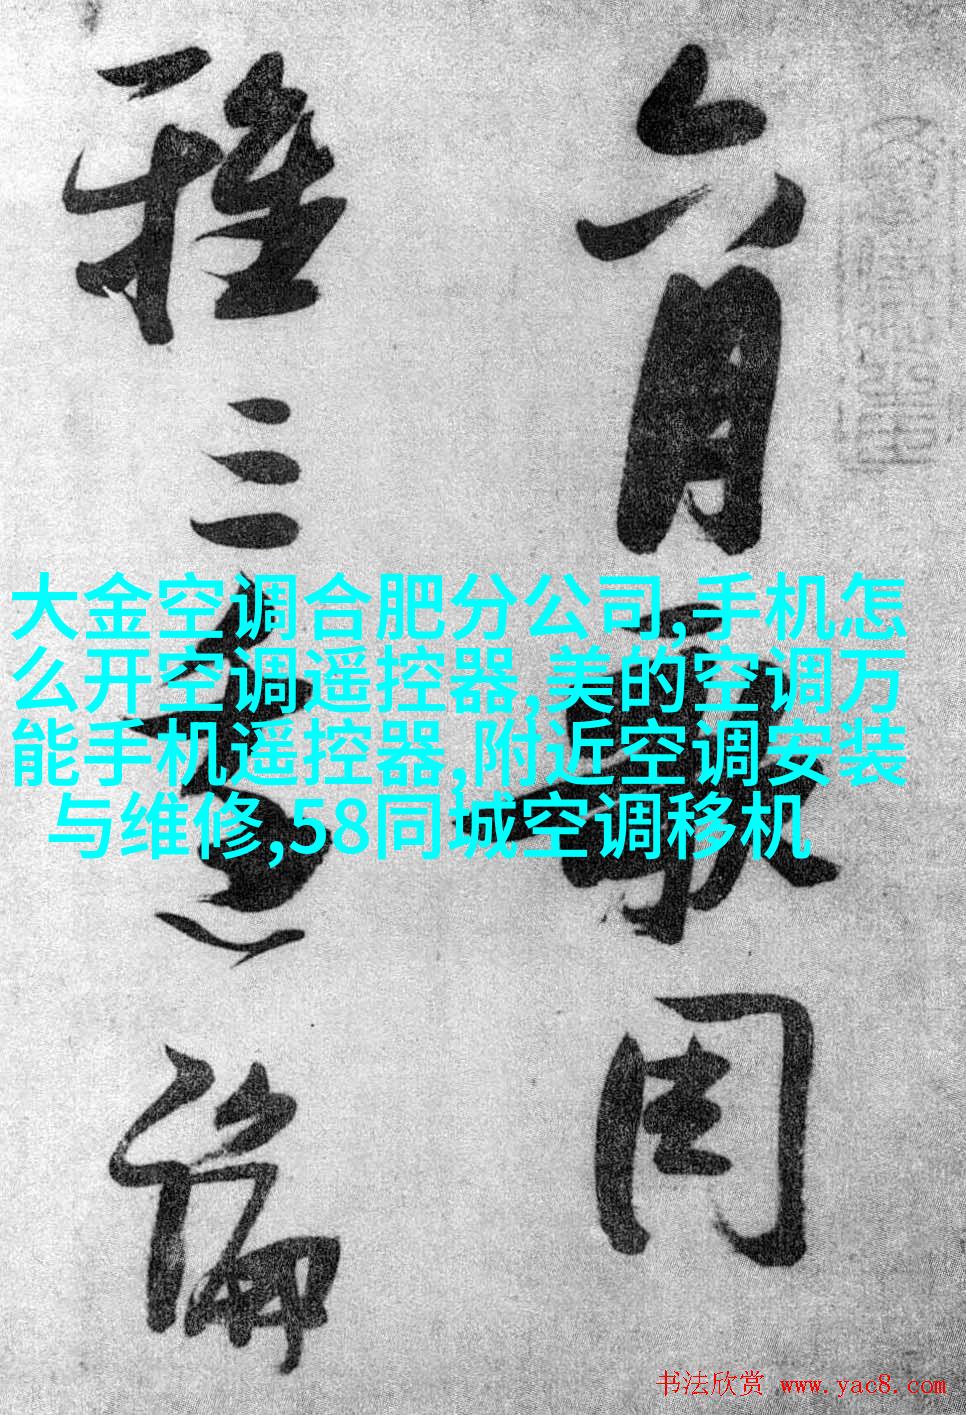 六月歌周
雅三
論
大金空调合肥分公司,手机怎
么开空调遥控器,美的空调万
能手机遥控器,附近空调安装
与维修,58同城空调移机
书法欣赏 www.yac8.com